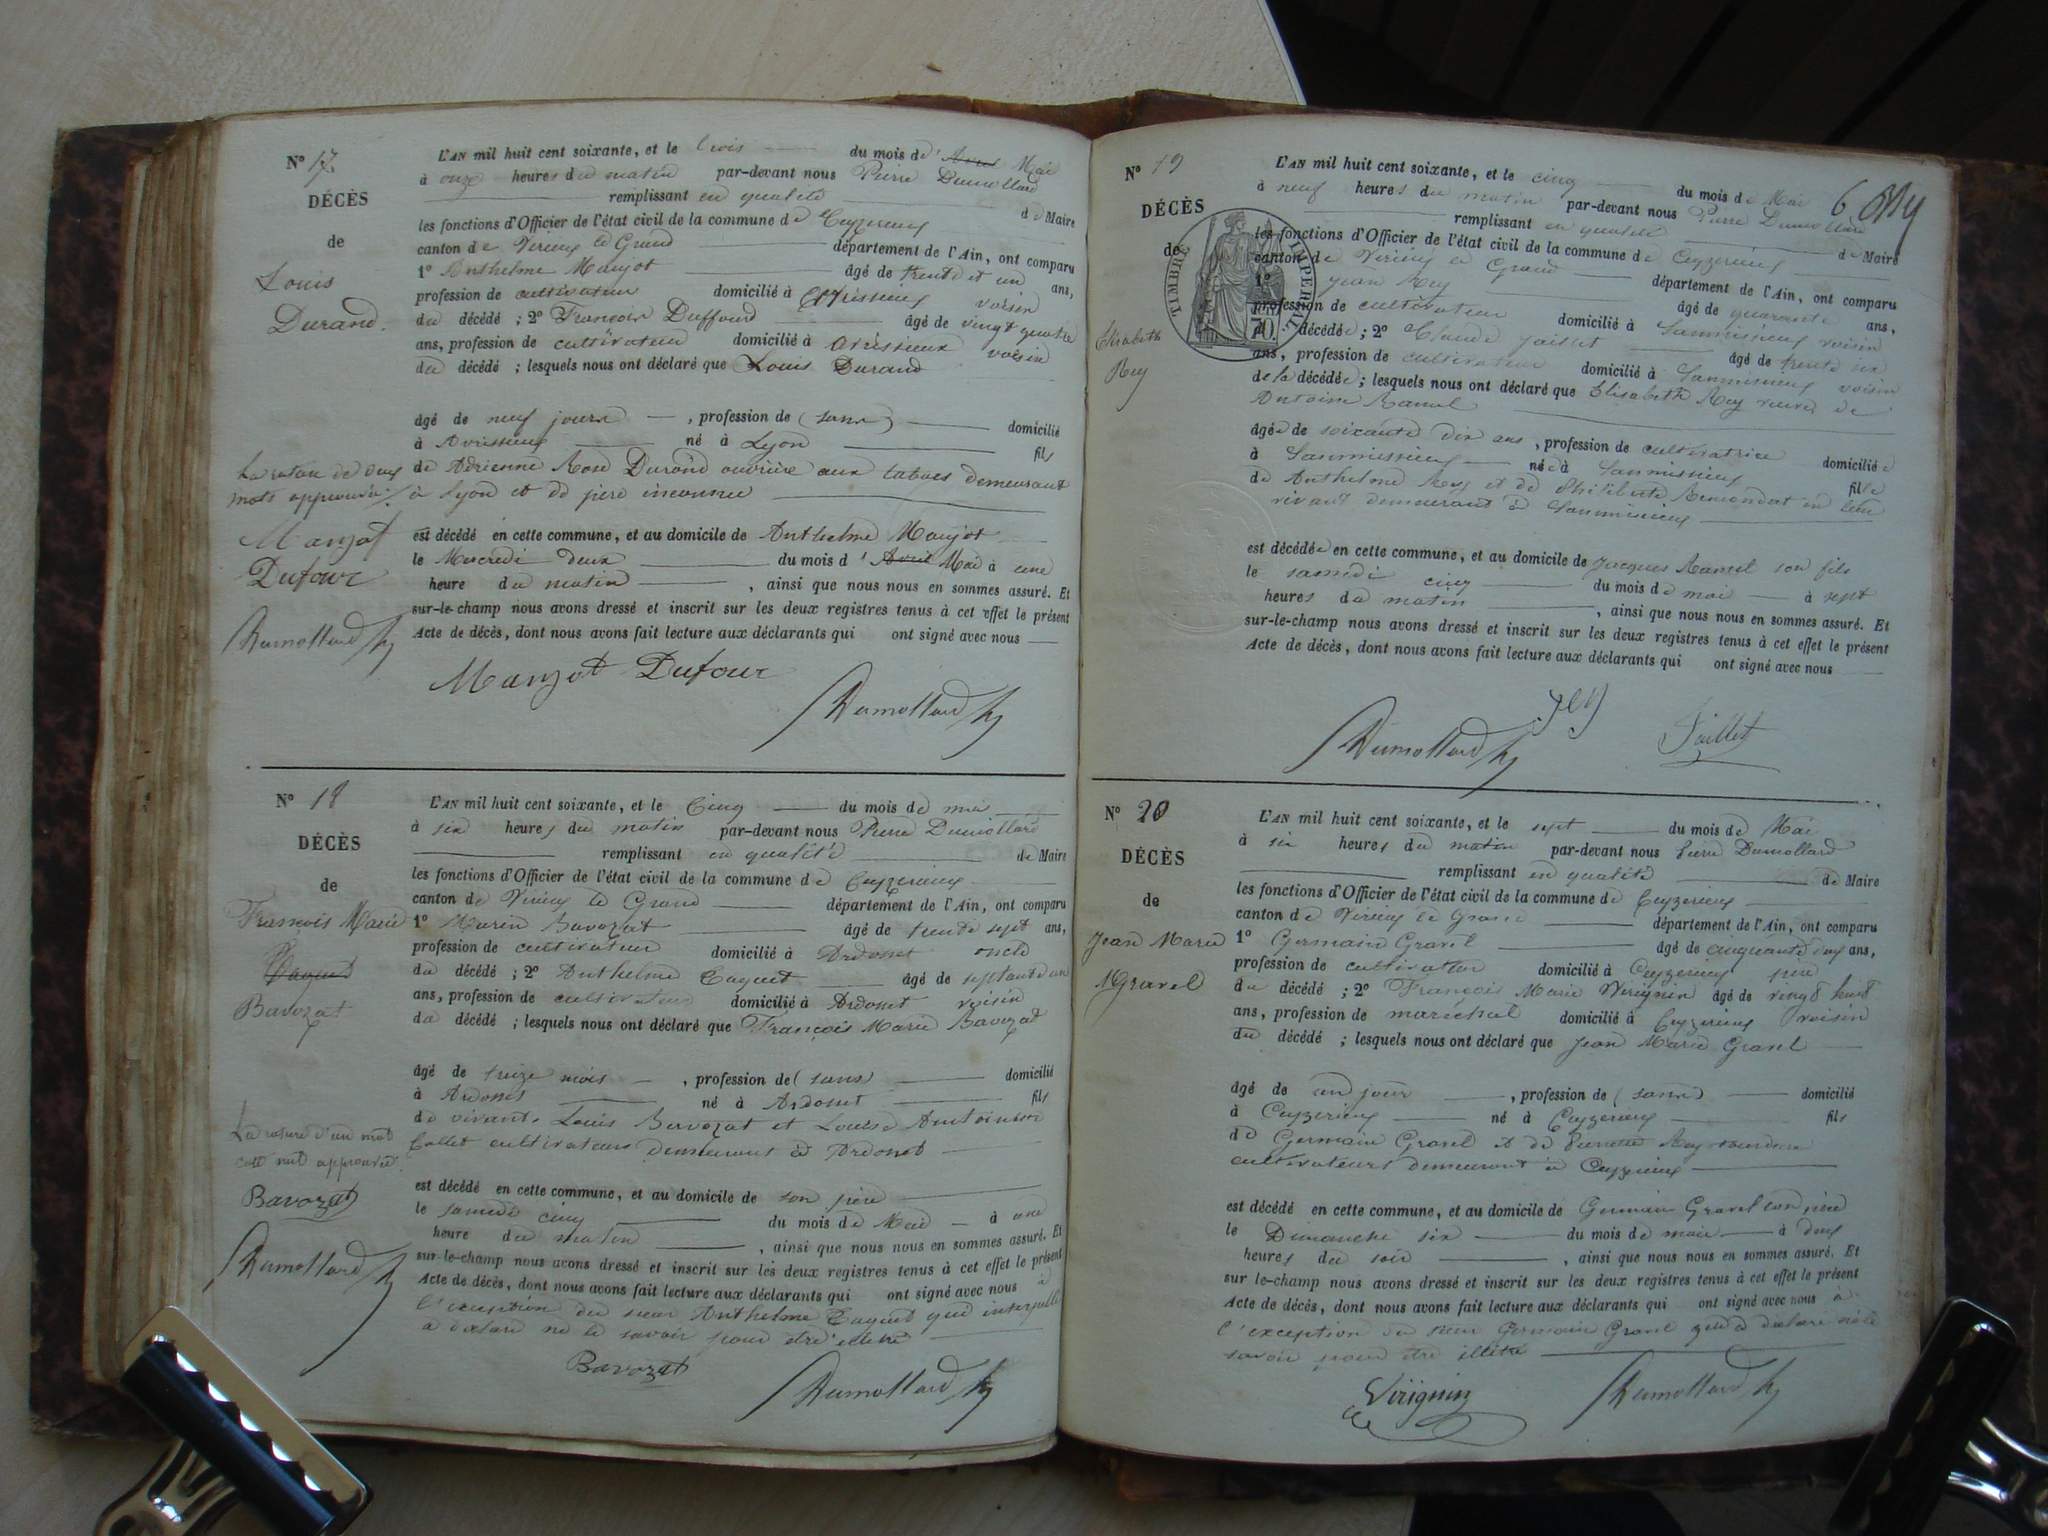 N° 17.
DÉCÈS
de
Louis
Durand.
L'AN mil huit cent soixante, et le trois du mois d' Avril Mai
à onze heures du matin par-devant nous Pierre Dumollard
remplissant en qualité de Maire
les fonctions d'Officier de l'état civil de la commune de Ceyzerieux
canton de Virieux le Grand département de l'Ain, ont comparu
1° Anthelme Manjot âgé de trente et un ans,
profession de cultivateur domicilié à Avrissieux voisin
du décédé ; 2° François Duffourd âgé de vingt quatre
ans, profession de cultivateur domicilié à Avrissieux voisin
du décédé ; lesquels nous ont déclaré que Louis Durand
âgé de neuf jours , profession de (sans) domicilié
à Avrissieux né à Lyon fils
de Adrienne Rose Durand ouvrière aux tabacs demeurant
à Lyon et de père inconnu
La rature de deux
mots approuvée
Manjot
Dufour
Dumollard
est décédé en cette commune, et au domicile de Anthelme Manjot
le Mercredi deux du mois d' Avril Mai à une
heure du matin , ainsi que nous nous en sommes assuré. Et
sur-le-champ nous avons dressé et inscrit sur les deux registres tenus à cet effet le présent
Acte de décès, dont nous avons fait lecture aux déclarants qui ont signé avec nous
Manjot Dufour
Dumollard
N° 18
DÉCÈS
de
François Marie
Bavozat
L'AN mil huit cent soixante, et le Cinq du mois de mai
à six heures du matin par-devant nous Pierre Dumollard
remplissant en qualité de Maire
les fonctions d'Officier de l'état civil de la commune de Ceyzerieux
canton de Virieux le Grand département de l'Ain, ont comparu
1° Marin Bavozat âgé de trente sept ans,
profession de cultivateur domicilié à Ardonet oncle
du décédé ; 2° Anthelme Caquet âgé de septante un
ans, profession de cultivateur domicilié à Ardonet voisin
du décédé ; lesquels nous ont déclaré que François Marie Bavozat
âgé de treize mois , profession de (sans) domicilié
à Ardonet né à Ardonet fils
de vivants Louis Bavozat et Louise Antoinette
Collet cultivateurs demeurant à Ardonet
La rature d'un mot
est approuvée
Bavozat
Dumollard
est décédé en cette commune, et au domicile de son père
le samedi cinq du mois de Mai à une
heure du matin , ainsi que nous nous en sommes assuré. Et
sur-le-champ nous avons dressé et inscrit sur les deux registres tenus à cet effet le présent
Acte de décès, dont nous avons fait lecture aux déclarants qui ont signé avec nous à
l'exception du sieur Anthelme Caquet qui interpellé
a déclaré ne le savoir pour être illitéré
Bavozat
Dumollard
N° 19
DÉCÈS
de
Elisabeth
Rey
TIMBRE IMPÉRIAL
70.
L'AN mil huit cent soixante, et le cinq du mois de Mai
à neuf heures du matin par-devant nous Pierre Dumollard
remplissant en qualité de Maire
les fonctions d'Officier de l'état civil de la commune de Ceyzerieux
canton de Virieux le Grand département de l'Ain, ont comparu
1° Jean Rey âgé de quarante ans,
profession de cultivateur domicilié à Sanmissieux voisin
décédée ; 2° Claude Jaillet âgé de trente six
ans, profession de cultivateur domicilié à Sanmissieux voisin
de la décédée ; lesquels nous ont déclaré que Elisabeth Rey veuve de
Antoine Ramel
âgée de soixante dix ans , profession de cultivatrice domiciliée
à Sanmissieux née à Sanmissieux fille
de Anthelme Rey et de Philiberte Remondat en leur
vivant demeurant à Sanmissieux
est décédée en cette commune, et au domicile de Jacques Ramel son fils
le samedi cinq du mois de mai à sept
heures du matin , ainsi que nous nous en sommes assuré. Et
sur-le-champ nous avons dressé et inscrit sur les deux registres tenus à cet effet le présent
Acte de décès, dont nous avons fait lecture aux déclarants qui ont signé avec nous
Dumollard Rey Jaillet
N° 20
DÉCÈS
de
Jean Marie
Gravel
L'AN mil huit cent soixante, et le sept du mois de Mai
à six heures du matin par-devant nous Pierre Dumollard
remplissant en qualité de Maire
les fonctions d'Officier de l'état civil de la commune de Ceyzerieux
canton de Virieux le Grand département de l'Ain, ont comparu
1° Germain Gravel âgé de cinquante deux ans,
profession de cultivateur domicilié à Ceyzerieux père
du décédé ; 2° François Marie Virignin âgé de vingt huit
ans, profession de maréchal domicilié à Ceyzerieux voisin
du décédé ; lesquels nous ont déclaré que Jean Marie Gravel
âgé de un jour , profession de (sans) domicilié
à Ceyzerieux né à Ceyzerieux fils
de Germain Gravel et de Pierrette Rey
cultivateurs demeurant à Ceyzerieux
est décédé en cette commune, et au domicile de Germain Gravel son père
le Dimanche six du mois de mai à deux
heures du soir , ainsi que nous nous en sommes assuré. Et
sur le-champ nous avons dressé et inscrit sur les deux registres tenus à cet effet le présent
Acte de décès, dont nous avons fait lecture aux déclarants qui ont signé avec nous à
l'exception du sieur Germain Gravel qui a déclaré ne le
savoir pour être illitéré
Virignin
Dumollard